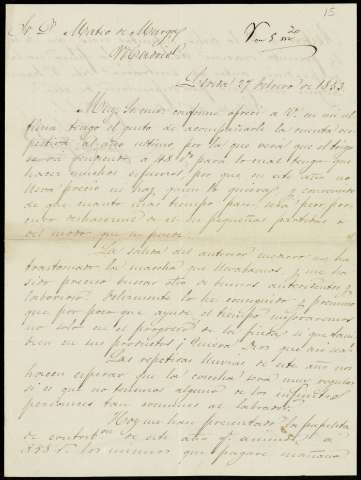 15
Sr. Dn. Mateo de Murga
Madrid
Lerida 27 Febrero de 1883.
Muy Sr. mio: conforme ofrecí a V. en mi el
tengo el gusto de acompañarle la cuenta
al año ultimo, por la que verá que el trigo
para lo cual tengo que
hacer muchos esfuerzos, por que en este año no
lleva precio ni hay quien le quiera, y convencido
de que cuanto mas tiempo pase, será peor, pro
curo deshacerme de el en pequeñas partidas o
del modo que se puede.
La salida del anterior me ha
trastornado la marcha que llevabamos, y me ha
sido preciso buscar otro de buenos antecedentes y
laborioso. Felizmente lo he conseguido, y
que por poco que ayude el tiempo mejoraremos
no solo en el progreso de la finca, si que tam
bien en sus productos ¡Quiera Dios que asi sea!
Las repetidas lluvias de este año nos
hacen esperar que la cosecha será muy regular
si es que no tenemos alguno de los infinitos
percances tan comunes al labrador.
Hoy me han presentado la papeleta
de contribon. de este año qe. asciende a
los mismos que pagaré mañana